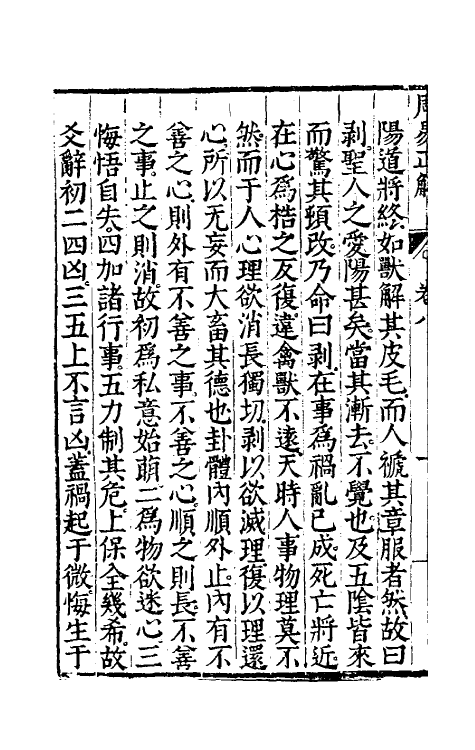 周易正解
卷八
陽道將終如獸解其皮毛而人褫其章服者然故曰
剥聖人之愛陽甚矣當其漸去不覺也及五陰皆來
而驚其頓改乃命曰剥在事爲禍亂已成死亡將近
在心爲梏之反復違禽獸不遠天時人事物理莫不
然而于人心理欲消長獨切剥以欲滅理復以理還
心所以无妄而大畜其德也卦體內順外止內有不
善之心則外有不善之事不善之心順之則長不善
之事止之則消故初爲私意始萌二爲物欲迷心三
悔悟自失四加諸行事五力制其危上保全幾希故
爻辭初二四凶三五上不言凶蓋禍起于微悔生于